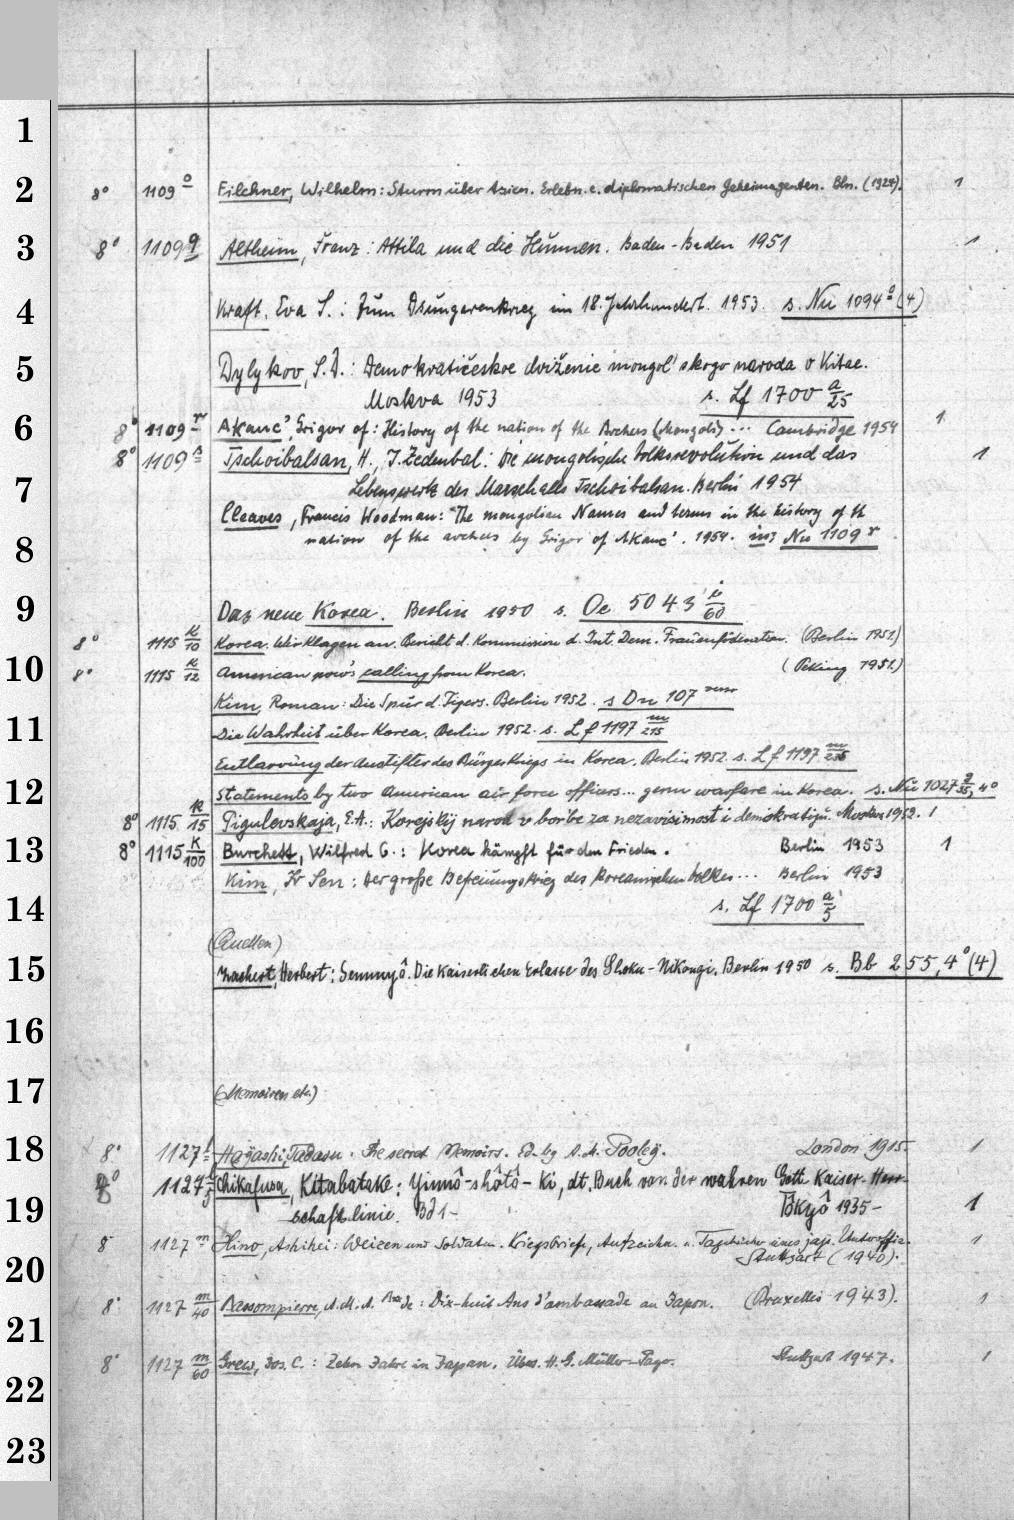 1
2 8° 1109 o Filchner, Wilhelm: Sturm über Asien. Erlebn. e. diplomatischen Geheimagenten. Bln. (1924). 1
3 8° 1109 q Altheim, Franz: Attila und die Hunnen. Baden-Baden 1951 1
4 Kraft, Eva S.: Zum Dsungarenkrieg im 18. Jahrhundert. 1953. s. Nu 1094 o (4)
5 Dylykov, S.D.: Demokratičeskoe dviženie mongol'skogo naroda v Kitae.
Moskva 1953 s. Lf 1700 a/25
6 8° 1109 r Akanc', Grigor of: History of the nation of the Archers (Mongols) ... Cambridge 1954 1
8° 1109 s Tschoibalsan, H., J. Zedenbal: Die mongolische Volksrevolution und das 1
7 Lebenswerk des Marschalls Tschoibalsan. Berlin 1954
Cleaves, Francis Woodman: The mongolian Names and terms in the history of the
8 nation of the archers by Grigor of Akanc'. 1954. in: Nu 1109 r
9 Das neue Korea. Berlin 1950 s. Oe 5043 i/60
8° 1115 k/10 Korea. Wir klagen an. Bericht d. Kommission d. Int. Dem. Frauenföderation. (Berlin 1951)
10 8° 1115 k/12 American pow's calling from Korea. (Peking 1951.)
Kim, Roman: Die Spur d. Tigers. Berlin 1952. s Dn 107
11 Die Wahrheit über Korea. Berlin 1952. s. Lf 1197 m/215
Entlarvung der Anstifter des Bürgerkriegs in Korea. Berlin 1952. s. Lf 1197
12 Statements by two American air force officers... germ warfare in Korea. s. Nu 1027 , 4°
8° 1115 k/15 Pigulevskaja, E.A.: Korejskij narod v bor'be za nezavisimost i demokratiju. Moskva 1952. 1
13 8° 1115 k/100 Burchett, Wilfred G.: Korea kämpft für den Frieden. Berlin 1953 1
Kim, Ir Sen: Der große Befreiungskrieg des koreanischen Volkes... Berlin 1953
14 s. Lf 1700 a/5
(Quellen)
15 Zachert, Herbert: Semmyô. Die kaiserlichen Erlasse des Shoku-Nihongi. Berlin 1950 s. Bb 255, 4° (4)
16
17 (Memoiren etc.)
18 8° 1127 Hayashi, Tadasu. The secret Memoirs. Ed. by A. M. Pooley. London 1915. 1
8° 1127 Chikafusa, Kitabatake: Jinnô-shôtô-ki, dt. Buch von der wahren Gott-Kaiser-Herr-
19 schaftslinie. Bd 1- Tôkyô 1935- 1
8° 1127 m Hino, Ashihei: Weizen und Soldaten. Kriegsbriefe, Aufzeichn. u. Tagebücher eines jap. Unteroffiz.. 1
20 Stuttgart (1940).
8° 1127 m/40 Bassompierre, A.M.A. Bon de: Dix-huit Ans d'ambassade au Japon. (Bruxelles 1943). 1
21
8° 1127 m/60 Grew, Jos. C.: Zehn Jahre in Japan. Übers. H. G. Müller-Payer. Stuttgart 1947. 1
22
23